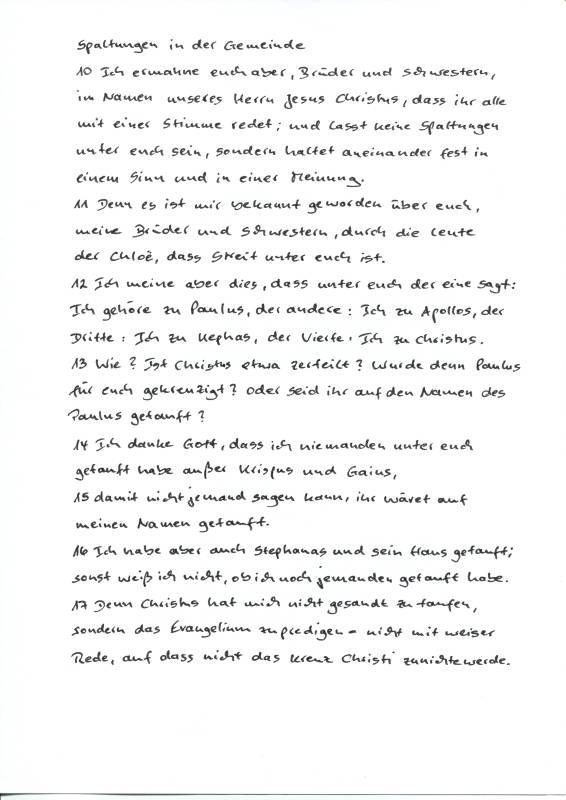 Spaltungen in der Gemeinde
10 Ich ermahne euch aber, Brüder und Schwestern,
im Namen unseres Herrn Jesus Christus, dass ihr alle
mit einer Stimme redet; und lasst keine Spaltungen
unter euch sein, sondern haltet aneinander fest in
einem Sinn und in einer Meinung.
11 Denn es ist mir bekannt geworden über euch,
meine Brüder und Schwestern, durch die Leute
der Chloë, dass Streit unter euch ist.
12 Ich meine aber dies, dass unter euch der eine sagt:
Ich gehöre zu Paulus, der andere: Ich zu Apollos, der
Dritte: Ich zu Kephas, der Vierte: Ich zu Christus.
13 Wie? Ist Christus etwa zerteilt? Wurde denn Paulus
für euch gekreuzigt? Oder seid ihr auf den Namen des
Paulus getauft?
14 Ich danke Gott, dass ich niemanden unter euch
getauft habe außer Krispus und Gaius,
15 damit nicht jemand sagen kann, ihr wäret auf
meinen Namen getauft.
16 Ich habe aber auch Stephanas und sein Haus getauft;
sonst weiß ich nicht, ob ich noch jemanden getauft habe.
17 Denn Christus hat mich nicht gesandt zu taufen,
sondern das Evangelium zu predigen – nicht mit weiser
Rede, auf dass nicht das Kreuz Christi zunichte werde.